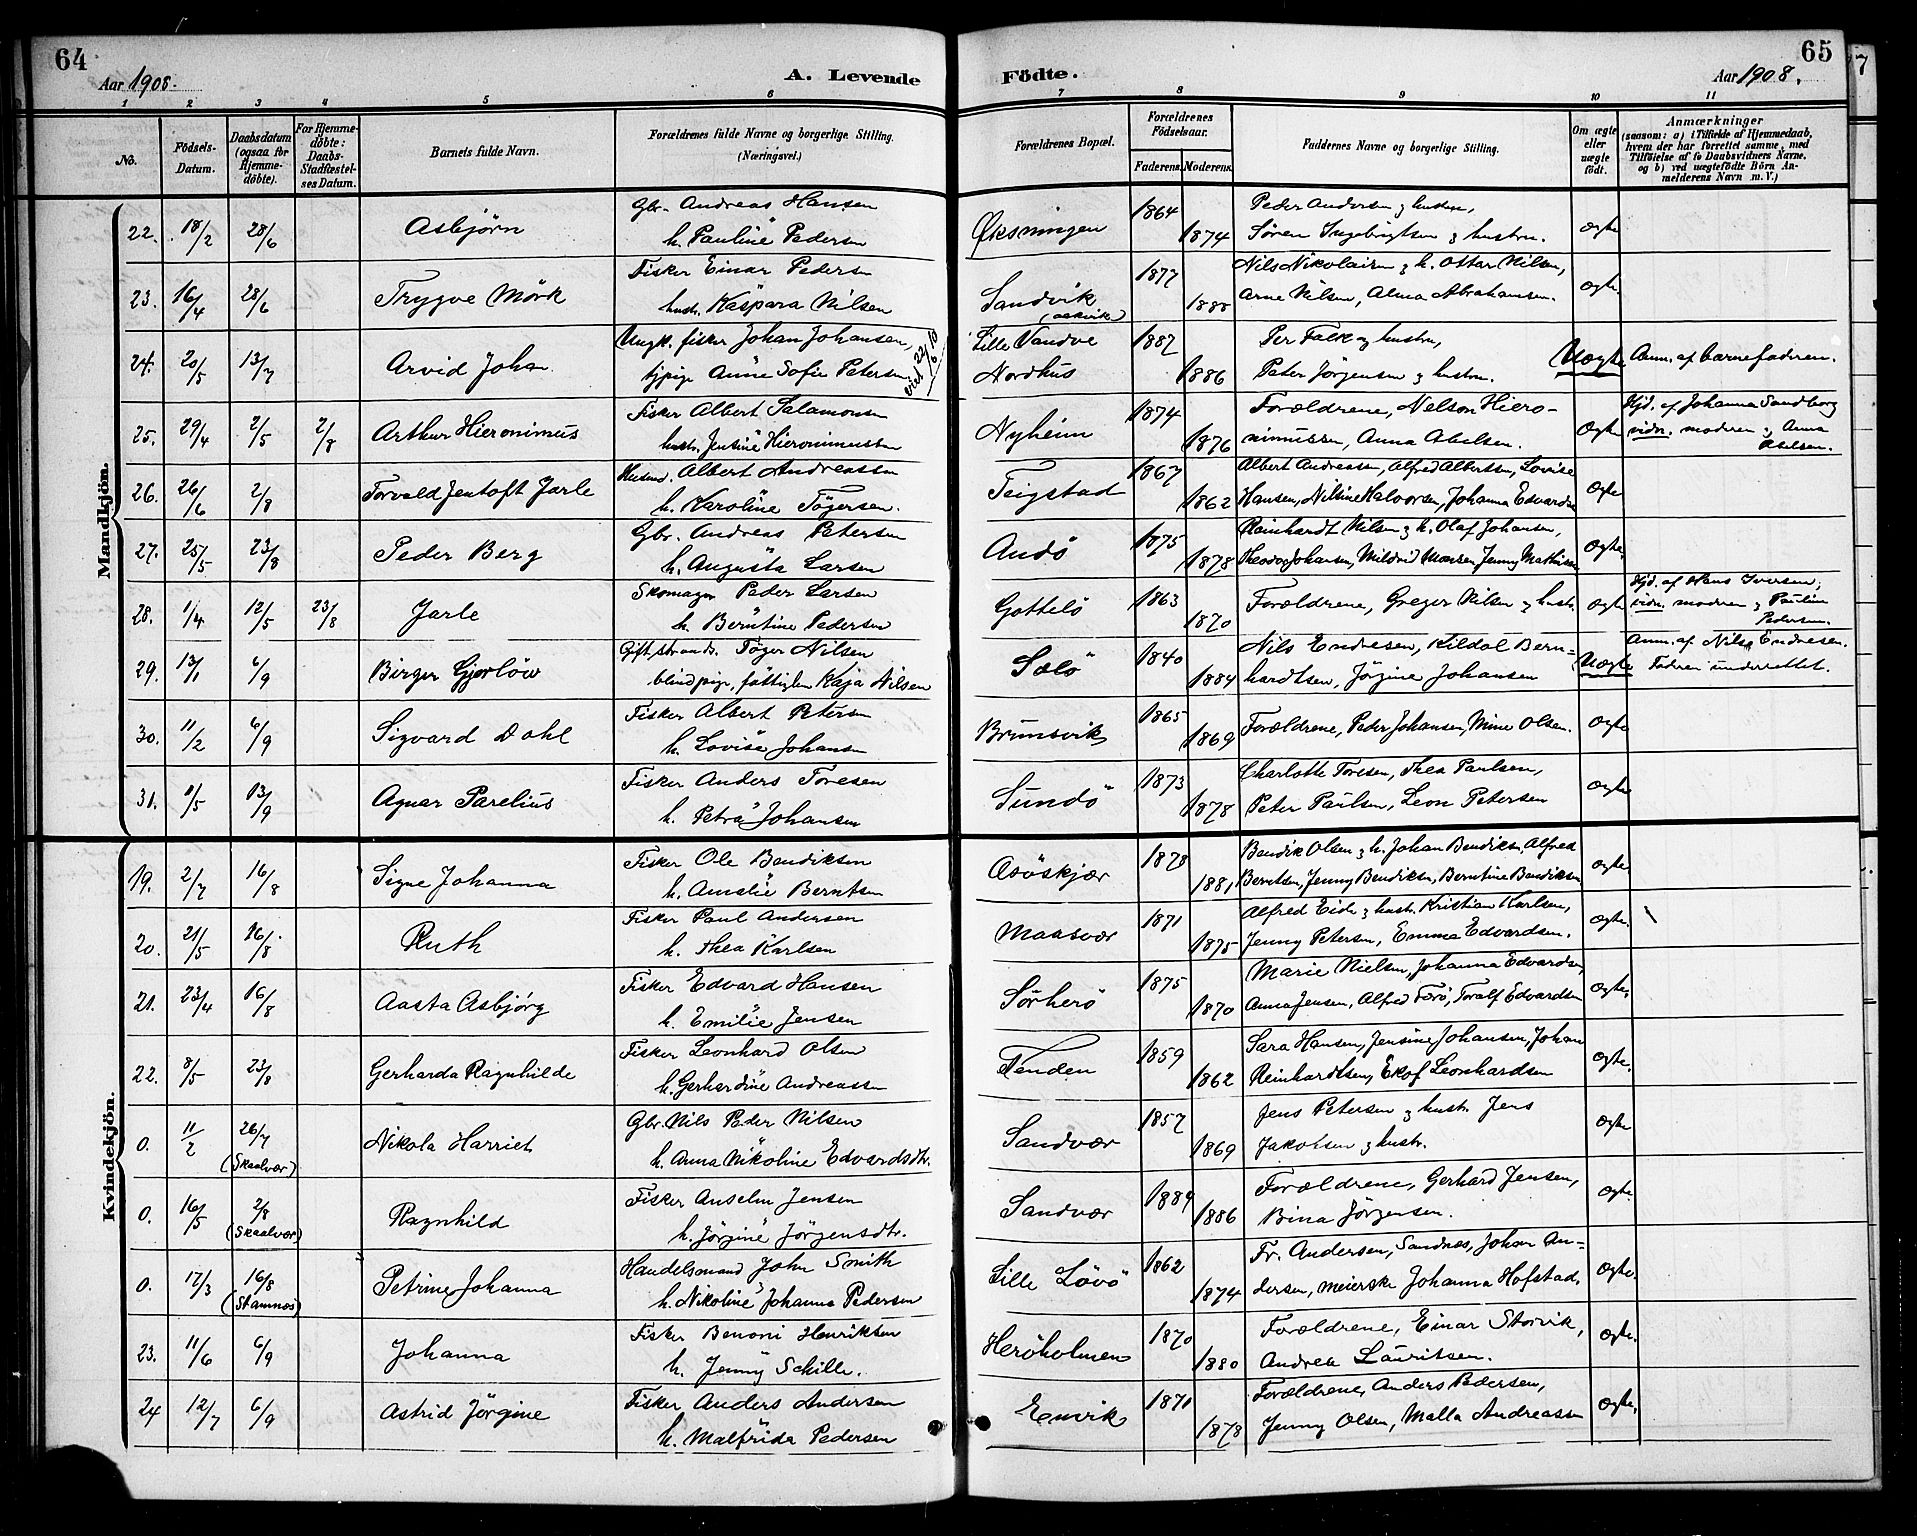 64
Aar 1908.
A. Levende
Födte.
Aar 1908.
65
1 2 3 4 5 6 7 8 9 10 11
No.
Födsels-Datum.
Daabsdatum (ogsaa for Hjemme-döbte).
For Hjemme-döbte: Daabs-Stadfæstel-ses Datum.
Barnets fulde Navn.
Forældrenes fulde Navne og borgerlige Stilling. (Næringsvei.)
Forældrenes Bopæl.
Forældrenes Födselsaar.
Faderens. Moderens.
Faddernes Navne og borgerlige Stilling.
Om ægte eller uægte födt.
Anmærkninger
(saasom: a) i Tilfælde af Hjemmedaab, hvem der har forrettet samme, med Tilföielse af to Daabsvidners Navne, og b) ved uægtefödte Börn Anmelderens Navn m. V.)
Mandkjön.
22. 18/2 28/6 Asbjörn Gbr. Andreas Hansen
h. Pauline Pedersen Öksningen 1864 1874 Peder Andersen & hustru,
Sören Ingebrigtsen & hustru. ægte
23. 16/4 28/6 Trygve Mörk Fisker Einar Pedersen
hustr. Kaspara Nilsen Sandvik 1877 1888 Nils Nikolaisen & h. Ottar Nilsen,
Arne Nilsen, Alma Abrahamsen. ægte
24. 20/5 13/7 Arvid Johan Ungk. fisker Johan Johansen,
tjpige Anne Sofie Petersen viet 22/6 10 Lille Vandve
Nordhus 1887 1886 Per Falk og hustru,
Peter Jörgensen & hustru. Uægte Anm. af barnefaderen.
25. 29/4 2/5 2/8 Arthur Hieronimus Fisker Albert Salamonsen
hustr. Jentine Hieronimussen Nyheim 1874 1876 Forældrene, Nelson Hiero-
nimussen, Anna Abelsen. Ægte Hjd. af Johanna Sandberg
vidn. moderen & Anna
Abelsen.
26. 26/6 2/8 Torvald Jentoft Jarle Husmd. Albert Andreassen
h. Karoline Tögersen. Teigstad 1867 1862 Albert Andreassen, Alfred Albertsen, Lovise
Hansen, Nilsine Halvorsen, Johanna Edvardsen ægte
27. 25/5 23/8 Peder Berg Gbr. Andreas Petersen
h. Augusta Larsen Andö 1875 1878 Reinhardt Nilsen & h. Olaf Johansen,
Theodor Johansen, Mildrid Monsen, Jenny Mathisen ægte.
28. 1/4 12/5 23/8 Jarle Skomager Peder Larsen
h. Berntine Pedersen Gottelö 1863 1870 Forældrene, Greger Nilsen & hust. ægte Hjd. af Hans Iversen.
vidn. moderen & Pauline
Pedersen.
29. 13/1 6/9 Birger Gjorlöw Gift, strands. Töger Nilsen
blindpige, fattiglem Kaja Nilsen Sælö 1840 1884 Nils Endresen, Kildal Bern-
hardtsen, Jörgine Johansen Uægte Anm. af Nils Endresen.
Faderen underrettet.
30. 11/2 6/9 Sigvard Dahl Fisker Albert Petersen
h. Lovise Johansen Brunsvik 1865 1869 Forældrene, Peder Johansen, Mine Olsen. Ægte
31. 1/5 13/9 Agnar Parelius Fisker Anders Toresen
h. Petra Johansen Sundö 1873 1878 Charlotte Toresen, Thea Paulsen,
Peter Paulsen, Leon Petersen ægte
Kvindekjön.
19. 2/7 16/8 Signe Johanna Fisker Ole Bendiksen
h. Amalie Berntsen Aasöskjær 1878 1881 Bendik Olsen & h. Johan Bendiksen, Alfred
Berntsen, Jenny Bendiksen, Berntine Bendiksen ægte
20. 21/5 16/8 Ruth Fisker Paul Andersen
h. Thea Karlsen Maasvær 1871 1875 Alfred Eide & hust. Kristian Karlsen,
Jenny Petersen, Emma Edvardsen. ægte.
21. 23/4 16/8 Aasta Asbjörg Fisker Edvard Hansen
h. Emilie Jensen Sörherö 1875 1870 Marie Nielsen, Johanna Edvardsen,
Anna Jensen, Alfred Forö, Toralf Edvardsen ægte.
22. 8/5 23/8 Gerharda Ragnhilde Fisker Leonhard Olsen
h. Gerhardine Andreassen Tenden 1859 1862 Sara Hansen, Jensine Johansen, Johan
Reinhardtsen, Ekof Leonhardsen ægte.
0. 11/2 26/7 (Skaalvær) Nikola Harriet Gbr. Nils Peder Nilsen
h. Anna Nikoline Edvardsdtr. Sandvær 1857 1869 Jens Petersen & hustr. Jens
Jakobsen & hustr. ægte
0. 16/5 2/8 (Skaalvær) Ragnhild Fisker Anselm Jensen
h. Jörgine Jörgensdtr. Sandvær 1889 1886 Forældrene, Gerhard Jensen,
Bina Jörgensen. ægte
0. 17/3 16/8 (Stamnes) Petrine Johanna Handelsmand John Smith
h. Nikoline Johanna Pedersen Lille Lövö 1862 1874 Fr. Andersen, Sandnes, Johan An-
dersen, meierske Johanna Hofstad, ægte.
23. 11/6 6/9 Johanna Fisker Benoni Henriksen
h. Jenny Schille. Heröholmen 1870 1880 Forældrene, Einar Storvik,
Andrea Lauritsen. ægte.
24 12/7 6/9 Astrid Jörgine Fisker Anders Andersen
h. Malfrida Pedersen Envik 1871 1878 Forældrene, Anders Pedersen,
Jenny Olsen, Malla Andreassen ægte.